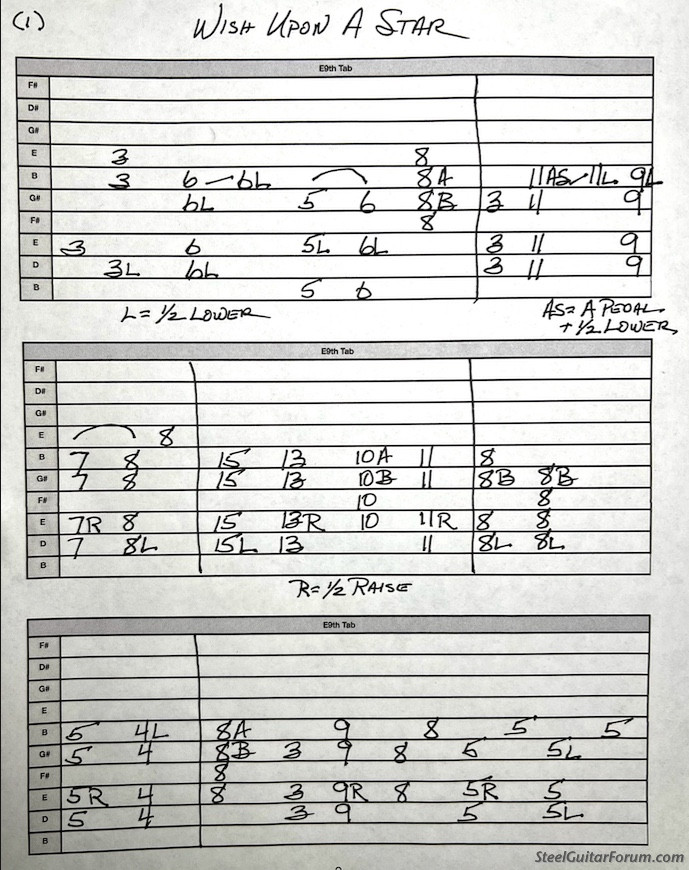 (1) WISH UPON A STAR
E9th Tab
F#
D#
G#
E 3 8
B 3 6 – 6L 8A 11AS 11L 9L
G# 6L 5 6 8B 3 11 9
F# 8
E 3 6 5L 6L 3 11 9
D 3L 6L 3 11 9
B 5 6
L = 1/2 LOWER AS = A PEDAL
+ 1/2 LOWER
E9th Tab
F#
D#
G#
E 8
B 7 8 15 13 10A 11 8
G# 7 8 15 13 10B 11 8B 8B
F# 10 8
E 7R 8 15 13R 10 11R 8 8
D 7 8L 15L 13 11 8L 8L
B
R = 1/2 RAISE
E9th Tab
F#
D#
G#
E
B 5 4L 8A 9 8 5 5
G# 5 4 8B 3 9 8 5 5L
F# 8
E 5R 4 8 3 9R 8 5R 5
D 5 4 3 9 5 5L
B
SteelGuitarForum.com